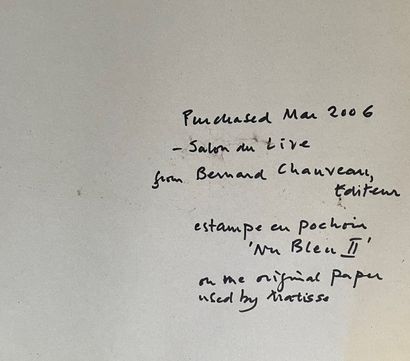 Purchased Mar 2006
- Salon du Livre
from Bernard Chauveau,
Editeur
estampe en pochoir
'Nu Bleu II'
on the original paper
used by Matisse